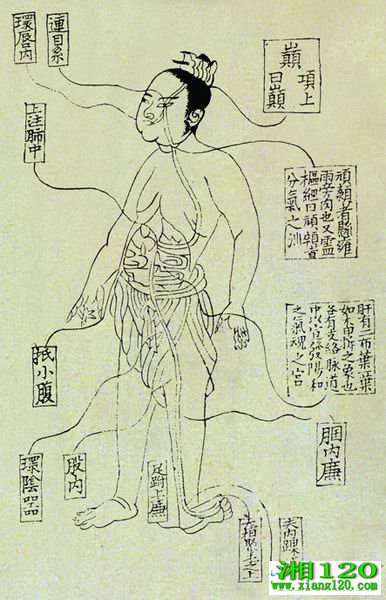 環唇內
連目系
巔
項上
曰巔
上注肺中
頏顙者看懸雍
兩旁肉也又靈
樞經曰頏顙者
分氣之
肝有二布葉葉
如木甲拆之象也
各有支絡脉道
中以宣發陽和
之氣魂之宮
抵小腹
膕內廉
環陰器
股內
足跗上廉
去內踝
湘120
www.xiang120.com